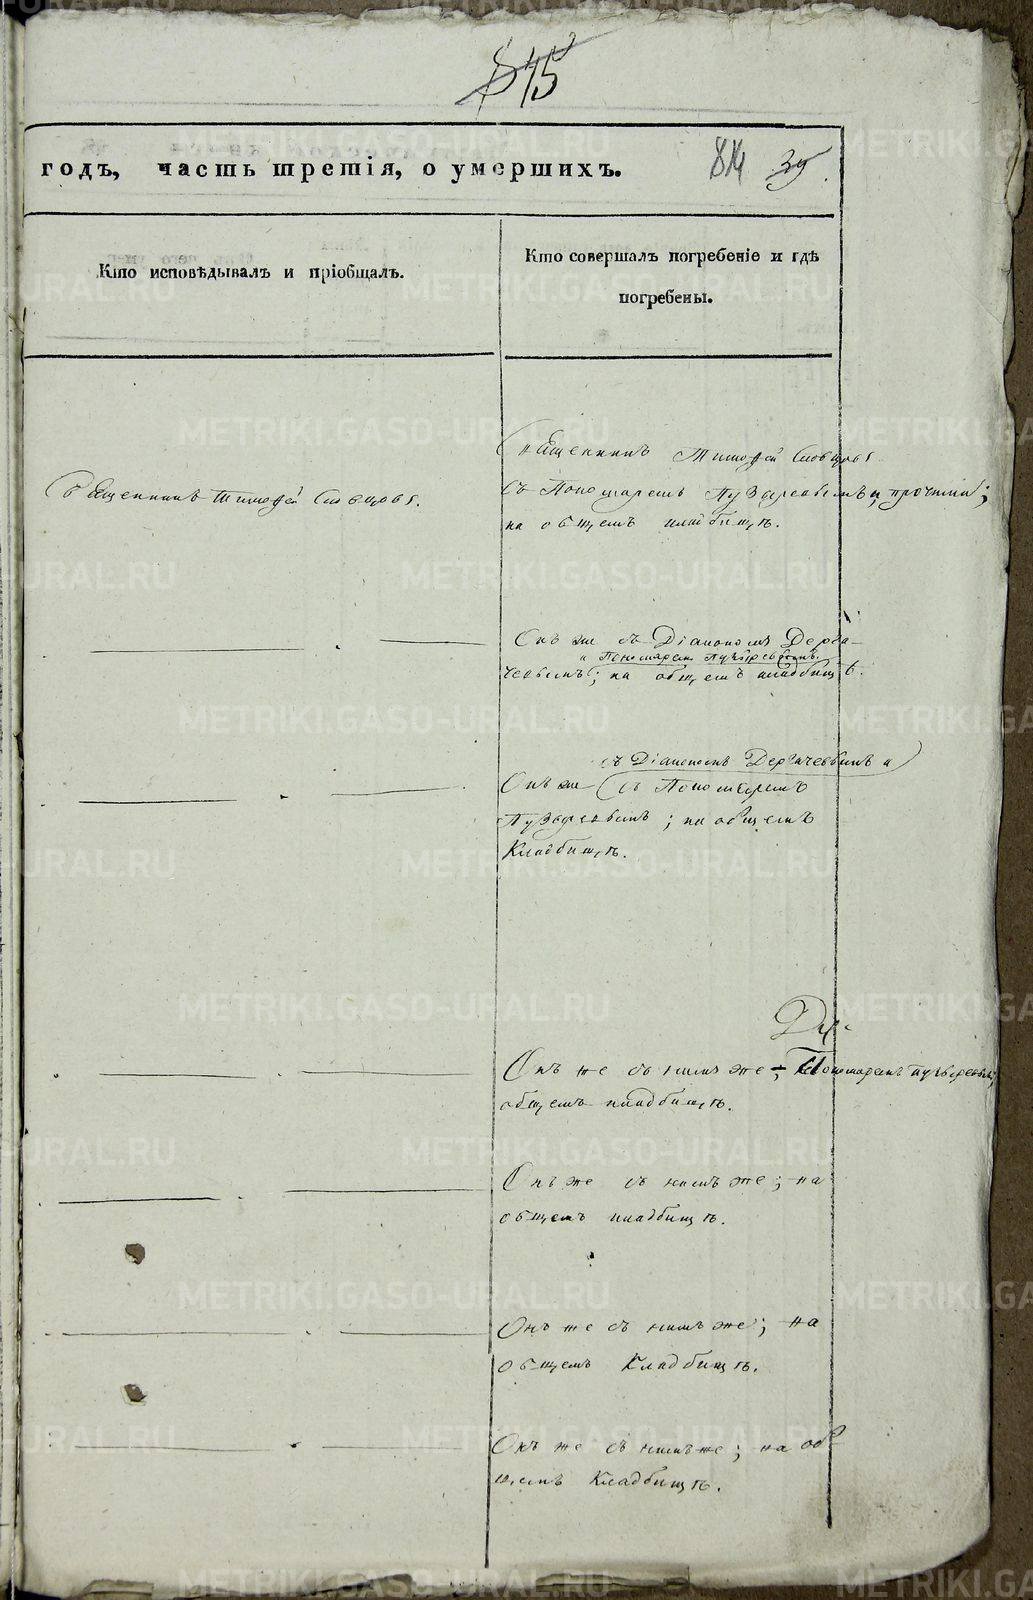 815
годъ, часть третія, о умершихъ.
814 39
Кто исповѣдывалъ и пріобщалъ.
Кто совершалъ погребеніе и гдѣ
погребены.
Священникъ Тимофей Словцовъ
Священникъ Тимофей Словцовъ.
съ Пономаремъ Пузыревымъ и прочими;
на общемъ кладбищѣ.
Онъ же съ Діакономъ Дерга-
и Пономаремъ Пузыревымъ
чевымъ; на общемъ кладбищѣ.
съ Діакономъ Дергачевымъ и
Онъ же съ Пономаремъ
Пузыревымъ; на общемъ
Кладбищѣ.
Онъ же съ нимъ же Пономаремъ Пузыревымъ;
общемъ кладбищѣ.
Онъ же съ нимъ же; на
общемъ кладбищѣ.
Онъ же съ нимъ же; на
общемъ Кладбищѣ.
Онъ же съ нимъ же; на об-
щемъ Кладбищѣ.
METRIKI.GASO-URAL.RU